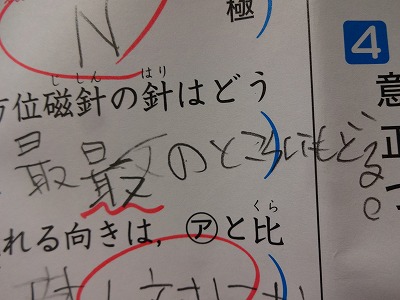 N
極)
4
方位磁針の針はどう
じしん はり
意
最最のところにもどる。
正
れる向きは、㋐と比
くら